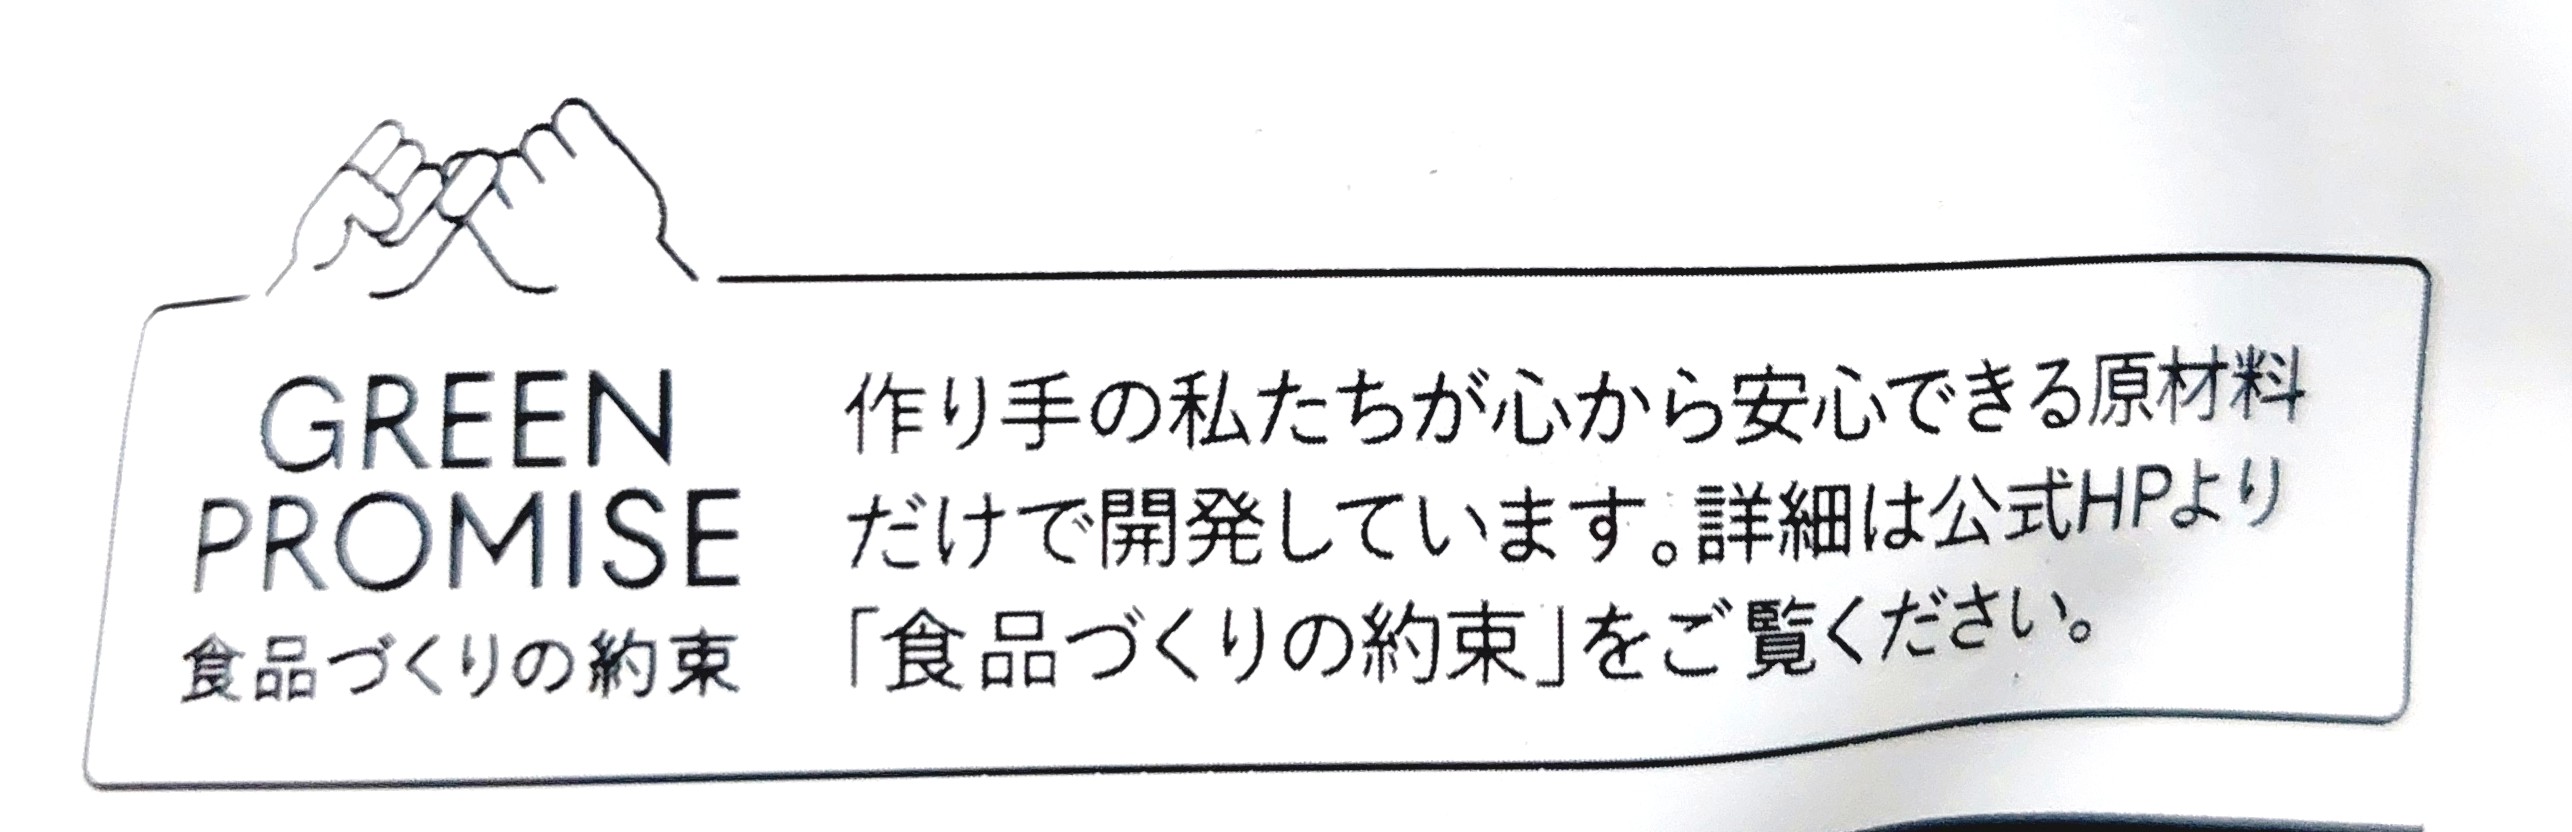 GREEN
PROMISE
食品づくりの約束
作り手の私たちが心から安心できる原材料
だけで開発しています。詳細は公式HPより
「食品づくりの約束」をご覧ください。